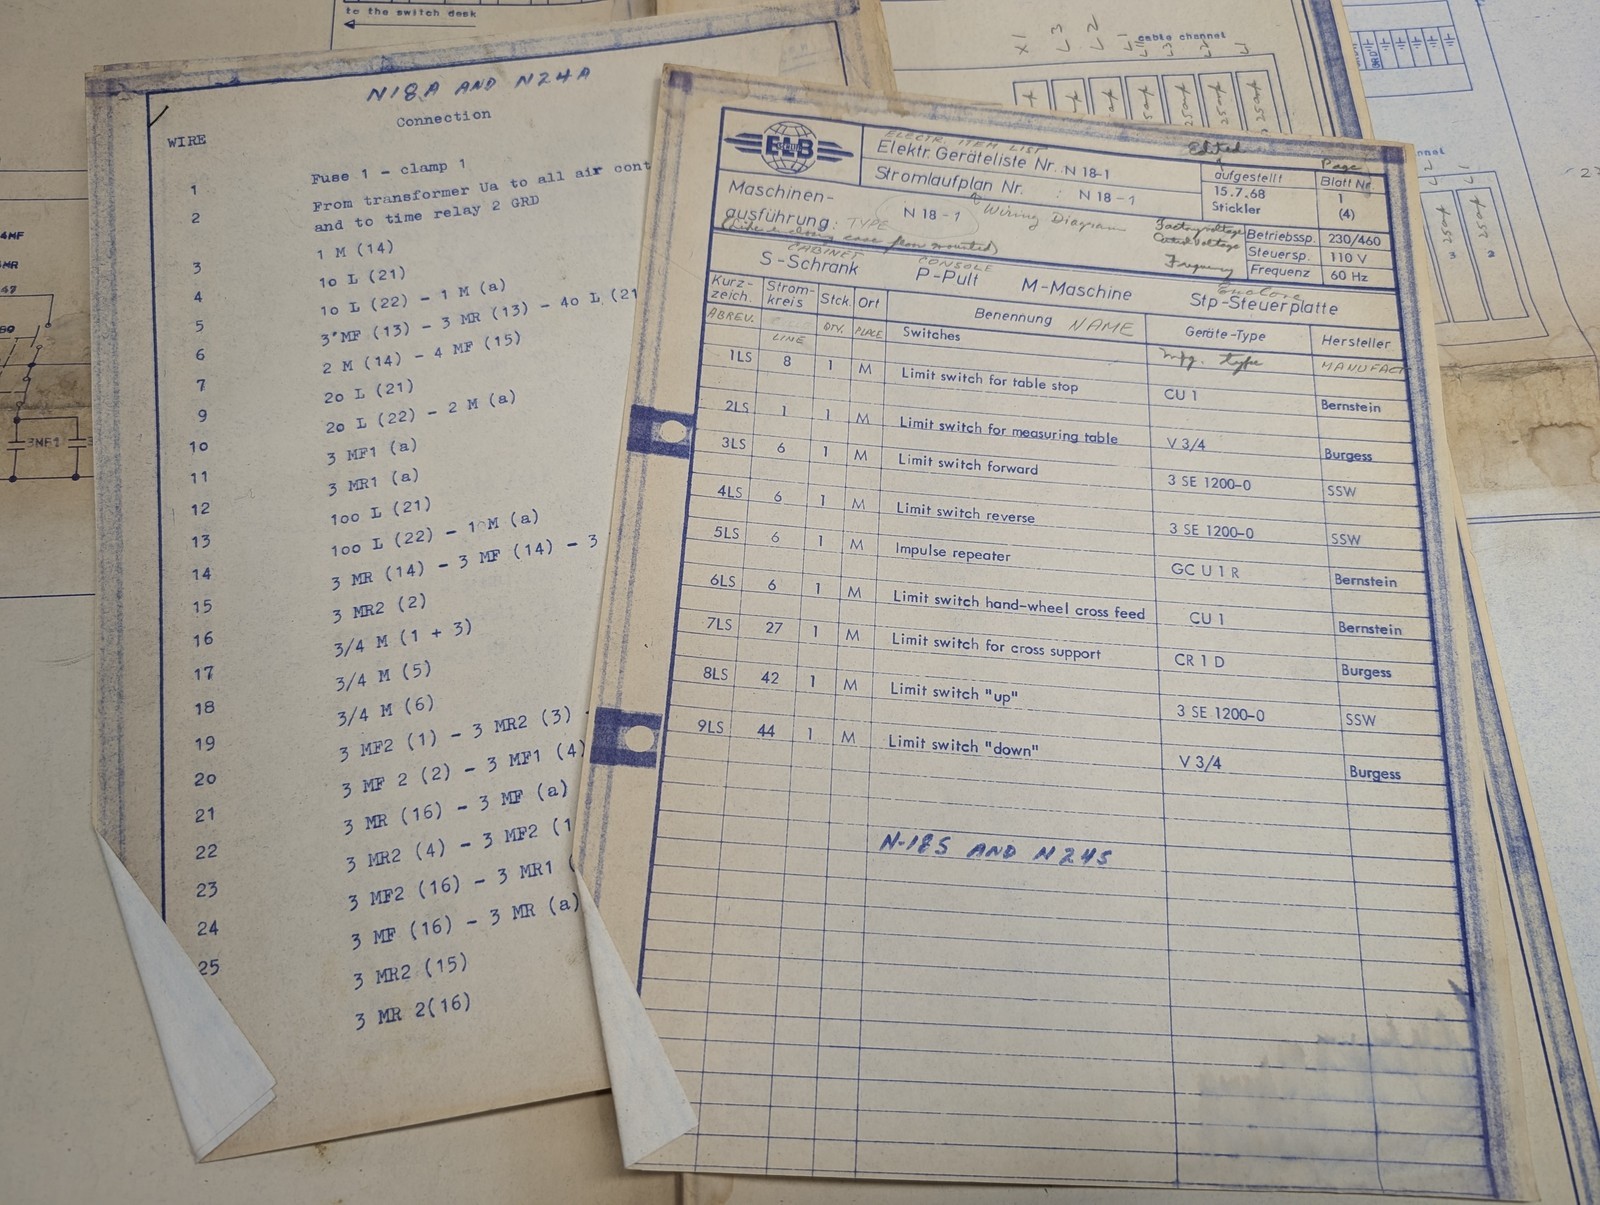 to the switch desk
N18A AND N24A
Connection
WIRE
Fuse 1 - clamp 1
1 From transformer Ua to all air cont
2 and to time relay 2 GRD
1 M (14)
3 10 L (21)
4 10 L (22) - 1 M (a)
5 3 MF (13) - 3 MR (13) - 40 L (21
6 2 M (14) - 4 MF (15)
7 20 L (21)
9 20 L (22) - 2 M (a)
10 3 MF1 (a)
11 3 MR1 (a)
12 100 L (21)
13 100 L (22) - 10 M (a)
14 3 MR (14) - 3 MF (14) - 3
15 3 MR2 (2)
16 3/4 M (1 + 3)
17 3/4 M (5)
18 3/4 M (6)
19 3 MF2 (1) - 3 MR2 (3) -
20 3 MF 2 (2) - 3 MF1 (4)
21 3 MR (16) - 3 MF (a)
22 3 MR2 (4) - 3 MF2 (1
23 3 MF2 (16) - 3 MR1 (
24 3 MF (16) - 3 MR (a)
25 3 MR2 (15)
3 MR 2(16)
ELB
SCHLIFF
ELECTR. ITEM LIST
Elektr. Geräteliste Nr. : N 18-1
Stromlaufplan Nr. : N 18-1
Wiring Diagram
Edited
aufgestellt
15.7.68
Stickler
Page
Blatt Nr.
1
(4)
Maschinen-
ausführung: TYPE N 18-1
Factory voltage Betriebssp. 230/460
Control voltage Steuersp. 110 V
Frequency Frequenz 60 Hz
CABINET CONSOLE Enclose
S-Schrank P-Pult M-Maschine Stp-Steuerplatte
Kurz-zeich. Strom-kreis Stck. Ort Benennung NAME Geräte-Type Hersteller
ABREV. LINE QTY. PLACE Switches mfg. type MANUFACT
1LS 8 1 M Limit switch for table stop CU 1 Bernstein
2LS 1 1 M Limit switch for measuring table V 3/4 Burgess
3LS 6 1 M Limit switch forward 3 SE 1200-0 SSW
4LS 6 1 M Limit switch reverse 3 SE 1200-0 SSW
5LS 6 1 M Impulse repeater GC U 1 R Bernstein
6LS 6 1 M Limit switch hand-wheel cross feed CU 1 Bernstein
7LS 27 1 M Limit switch for cross support CR 1 D Burgess
8LS 42 1 M Limit switch "up" 3 SE 1200-0 SSW
9LS 44 1 M Limit switch "down" V 3/4 Burgess
N-18S AND N24S
X1 L3 L2 L1
cable channel
3NF1